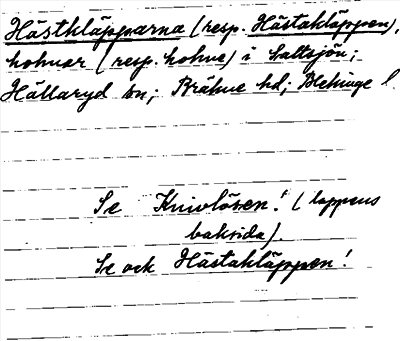 Hästkläpparna (resp. Hästakläppen),
holmar (resp. holme) i Saltsjön;
Hällaryd sn; Bräkne hd; Blekinge l.
Se Knivlösen! (lappens
baksida).
Se ock Hästakläppen!